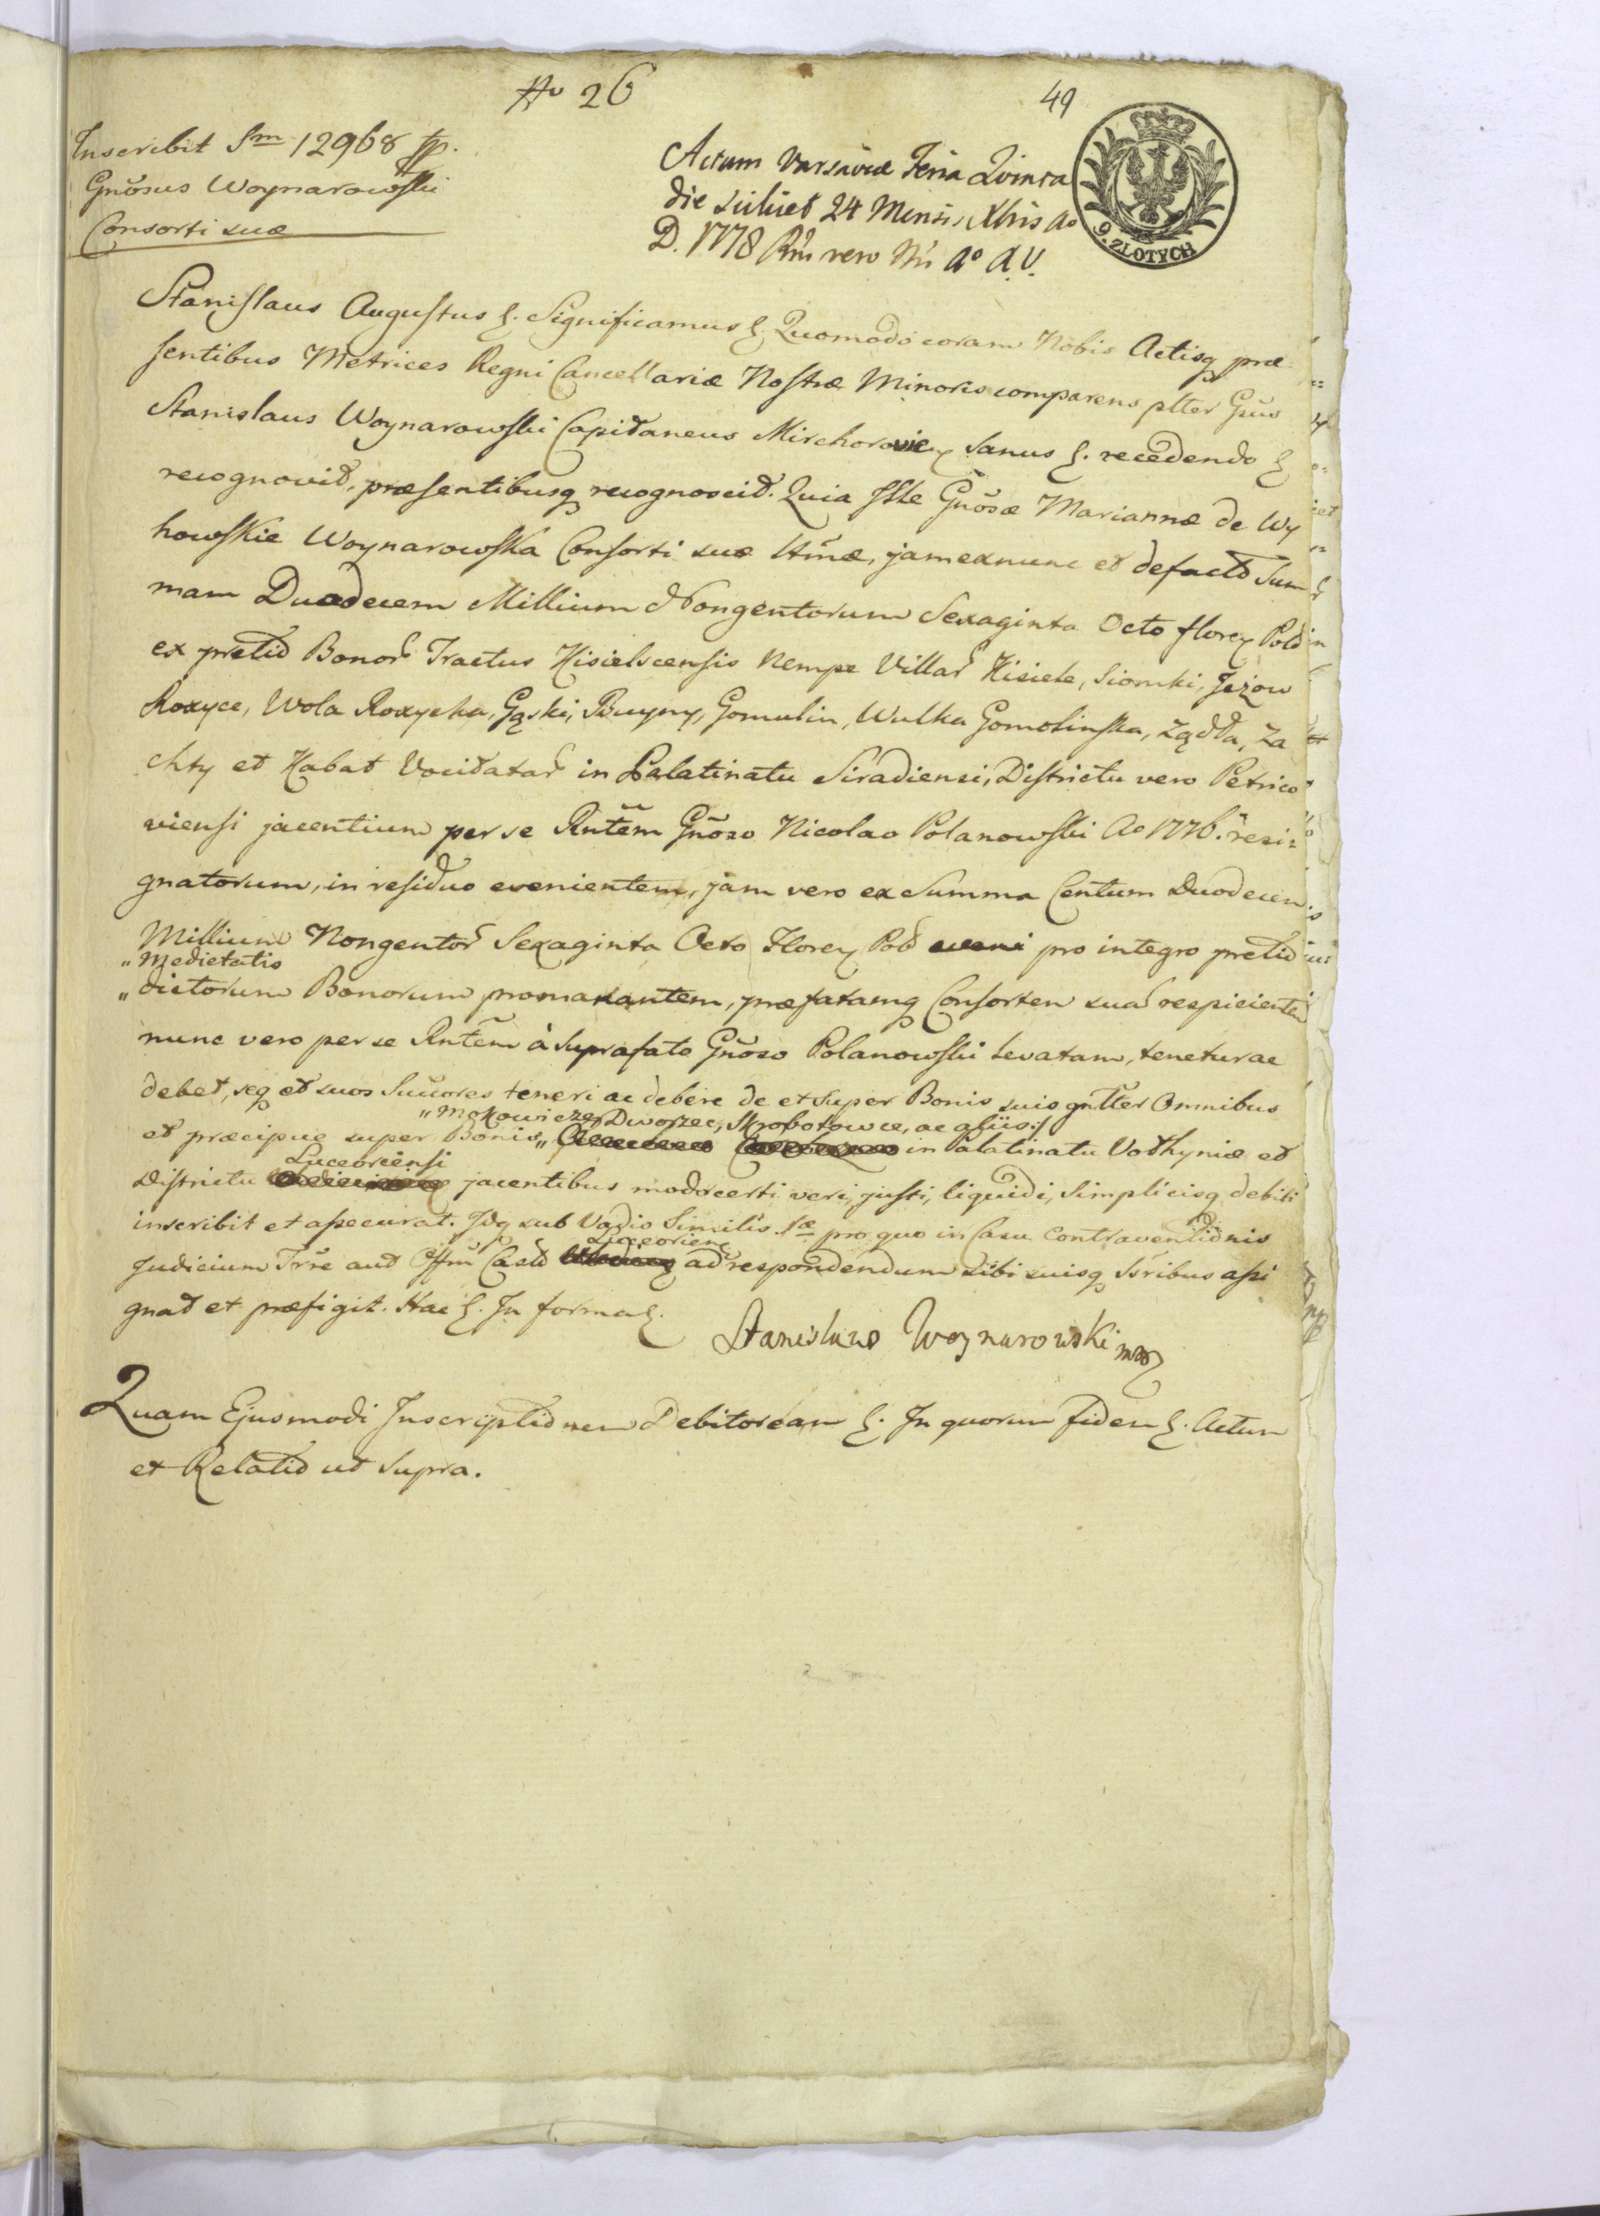 No 26
49
Inscribit Sm 12968 fp.
Gnosus Woynarowski
Consorti suæ
Actum Varsaviæ Feria Quinta
die scilicet 24 Mensis Xbris Ao
D. 1778 Rni vero Nri Ao A.V.
9. ZŁOTYCH
Stanislaus Augustus &. Significamus &. Quomodo coram Nobis Actisq præ-
sentibus Metrices Regni Cancellariæ Nostræ Minoris comparens plter Gsus
Stanislaus Woynarowski Capitaneus Mirchorowic, sanus &. recedendo &
recognovit, præsentibusq recognoscit. Quia Ille Gnosæ Mariannæ de Wy
howskie Woynarowska Consorti suæ Ctmæ, jamexnunc et defacto Sum
mam Duodecem Millium Nongentorum Sexaginta Octo floren Pold
ex pretio Bonor Tractus Kisielscensis Nempe Villar Kisiele, Siomki, Jeżow
Roxyce, Wola Roxycka, Gąski, Buyny, Gomulin, Wulka Gomolinska, Ządła, Za
chty et Kabat Vocitatar in Palatinatu Siradiensi, Districtu vero Petrico
viensi jacentium per se Rntem Gnoso Nicolao Polanowski Ao 1776. resi-
gnatorum, in residuo evenientem, jam vero ex Summa Centum Duodecem
Millium Nongentor Sexaginta Octo Floren Pol pro integro pretio
„Medietatis
„dictorum Bonorum promanantem, præfatamq Consorten suam respicientem
nunc vero per se Rntem à Suprafato Gnoso Polanowski levatam, tenetur ac
debet, seq et suos Succores teneri ac debere de et super Bonis suis gnlter Omnibus
„Mokowicze, Dworzec, Skrobotowce, ac aliis
et præcipue super Bonis„ in Palatinatu Volhyniæ et
Luceoriensi
Districtu jacentibus modo certi veri, justi, liquidi, Simplicisq debiti
inscribit et assecurat. Idq sub Vadio Similis Sæ pro quo in Casu Contraventionis
Luceorien
Judicium Trre aut Offm Castr ad respondendum sibi suisq Ssribus assi
gnat et præfigit. Hac &. In forma &.
Stanislaus Woynarowski mp
Quam Ejusmodi Inscriptionem Debitoream &. In quorum fidem &. Actum
et Relatio ut Supra.